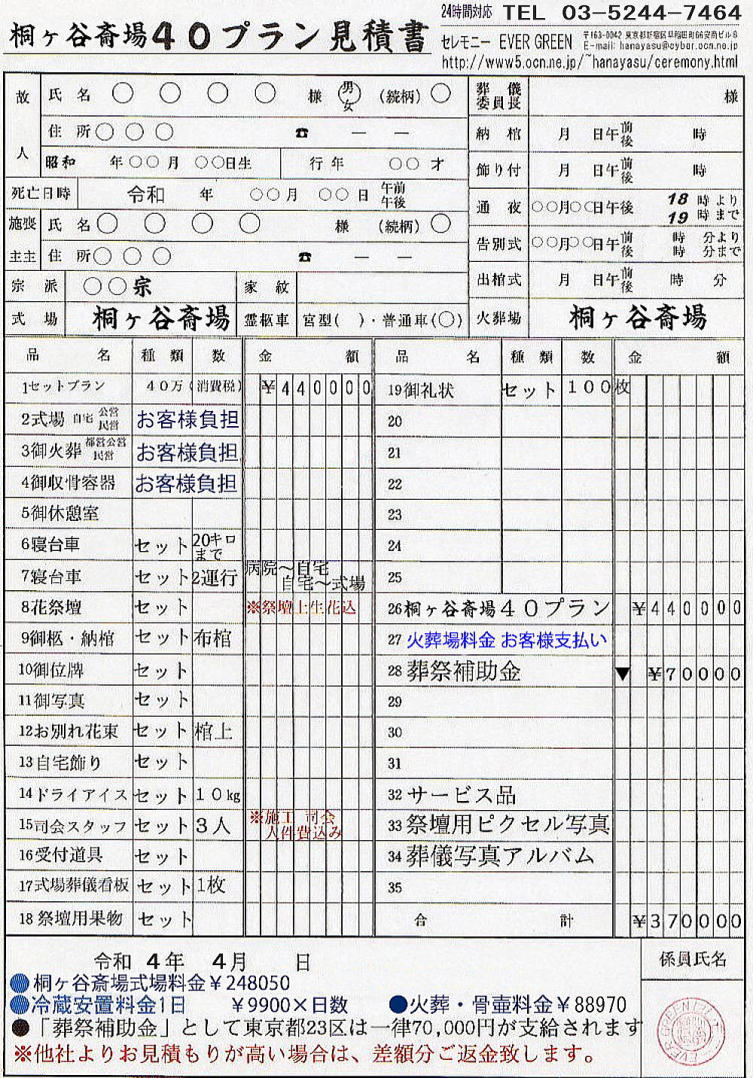 24時間対応 TEL 03-5244-7464
桐ヶ谷斎場40プラン見積書
セレモニー EVER GREEN
〒163-0042 東京都新宿区早稲田町66安商ビル8
E-mail: hanayasu@cyber.ocn.ne.jp
http://www5.ocn.ne.jp/~hanayasu/ceremony.html
故人 氏名 ○ ○ ○ ○ 様 男 女 (続柄) ○
住所 ○ ○ ○ ☎ ― ―
昭和 年○○月 ○○日生 行年 ○○才
死亡日時 令和 年 ○○月 ○○日 午前 午後
施喪 主主 氏名 ○ ○ ○ ○ 様 (続柄) ○
住所○ ○ ○ ☎ ― ―
宗派 ○○宗 家紋
式場 桐ヶ谷斎場 霊柩車 宮型( )・普通車(○)
葬儀委員長 様
納棺 月 日午前後 時
飾り付 月 日午前後 時
通夜 ○○月○○日午後 18時より 19時まで
告別式 ○○月○○日午前後 時 分より 時 分まで
出棺式 月 日午前後 時 分
火葬場 桐ヶ谷斎場
品名 種類 数 金額
1セットプラン 40万(消費税) ¥440000
2式場 自宅 公営 民営 お客様負担
3御火葬 都営公営 民営 お客様負担
4御収骨容器 お客様負担
5御休憩室
6寝台車 セット 20キロまで
7寝台車 セット 2運行 病院~自宅 自宅~式場
8花祭壇 セット ※祭壇上生花込
9御柩・納棺 セット 布棺
10御位牌 セット
11御写真 セット
12お別れ花束 セット 棺上
13自宅飾り セット
14ドライアイス セット 10kg
15司会スタッフ セット 3人 ※施工 司会 人件費込み
16受付道具 セット
17式場葬儀看板 セット 1枚
18祭壇用果物 セット
品名 種類 数 金額
19御礼状 セット 100枚
20
21
22
23
24
25
26桐ヶ谷斎場40プラン ¥440000
27 火葬場料金 お客様支払い
28 葬祭補助金 ▼ ¥70000
29
30
31
32 サービス品
33 祭壇用ピクセル写真
34 葬儀写真アルバム
35
合計 ¥370000
令和 4年 4月 日
係員氏名
●桐ヶ谷斎場式場料金¥248050
●冷蔵安置料金1日 ¥9900×日数 ●火葬・骨壺料金¥88970
●「葬祭補助金」として東京都23区は一律70,000円が支給されます
※他社よりお見積もりが高い場合は、差額分ご返金致します。